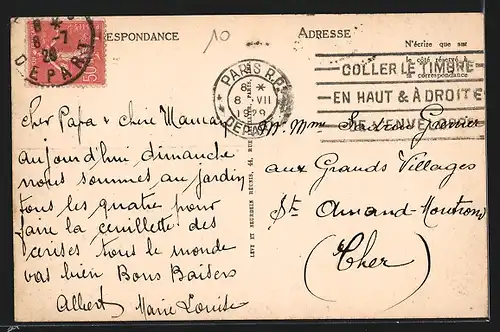 RESPONDANCE
10
ADRESSE
N'écrire que sur
le côté réservé à
la correspondance
8 *
8 -7
29
DEPART
50
PARIS R.P.
8 *
8 VII
1929
DEPART
COLLER LE TIMBRE
EN HAUT & À DROITE
DE L'ENVELOPPE
LEVY ET NEURDEIN RÉUNIS, 44, RUE
Cher Papa & chère Maman
aujourd'hui dimanche
nous sommes au jardin
tous les quatre pour
faire la ceuillette des
cerises tous le monde
vas bien Bons Baisers
Albert Marie Louise
Mr Mme Grenier
aux Grands Villages
St Amand-Montrond
(Cher)